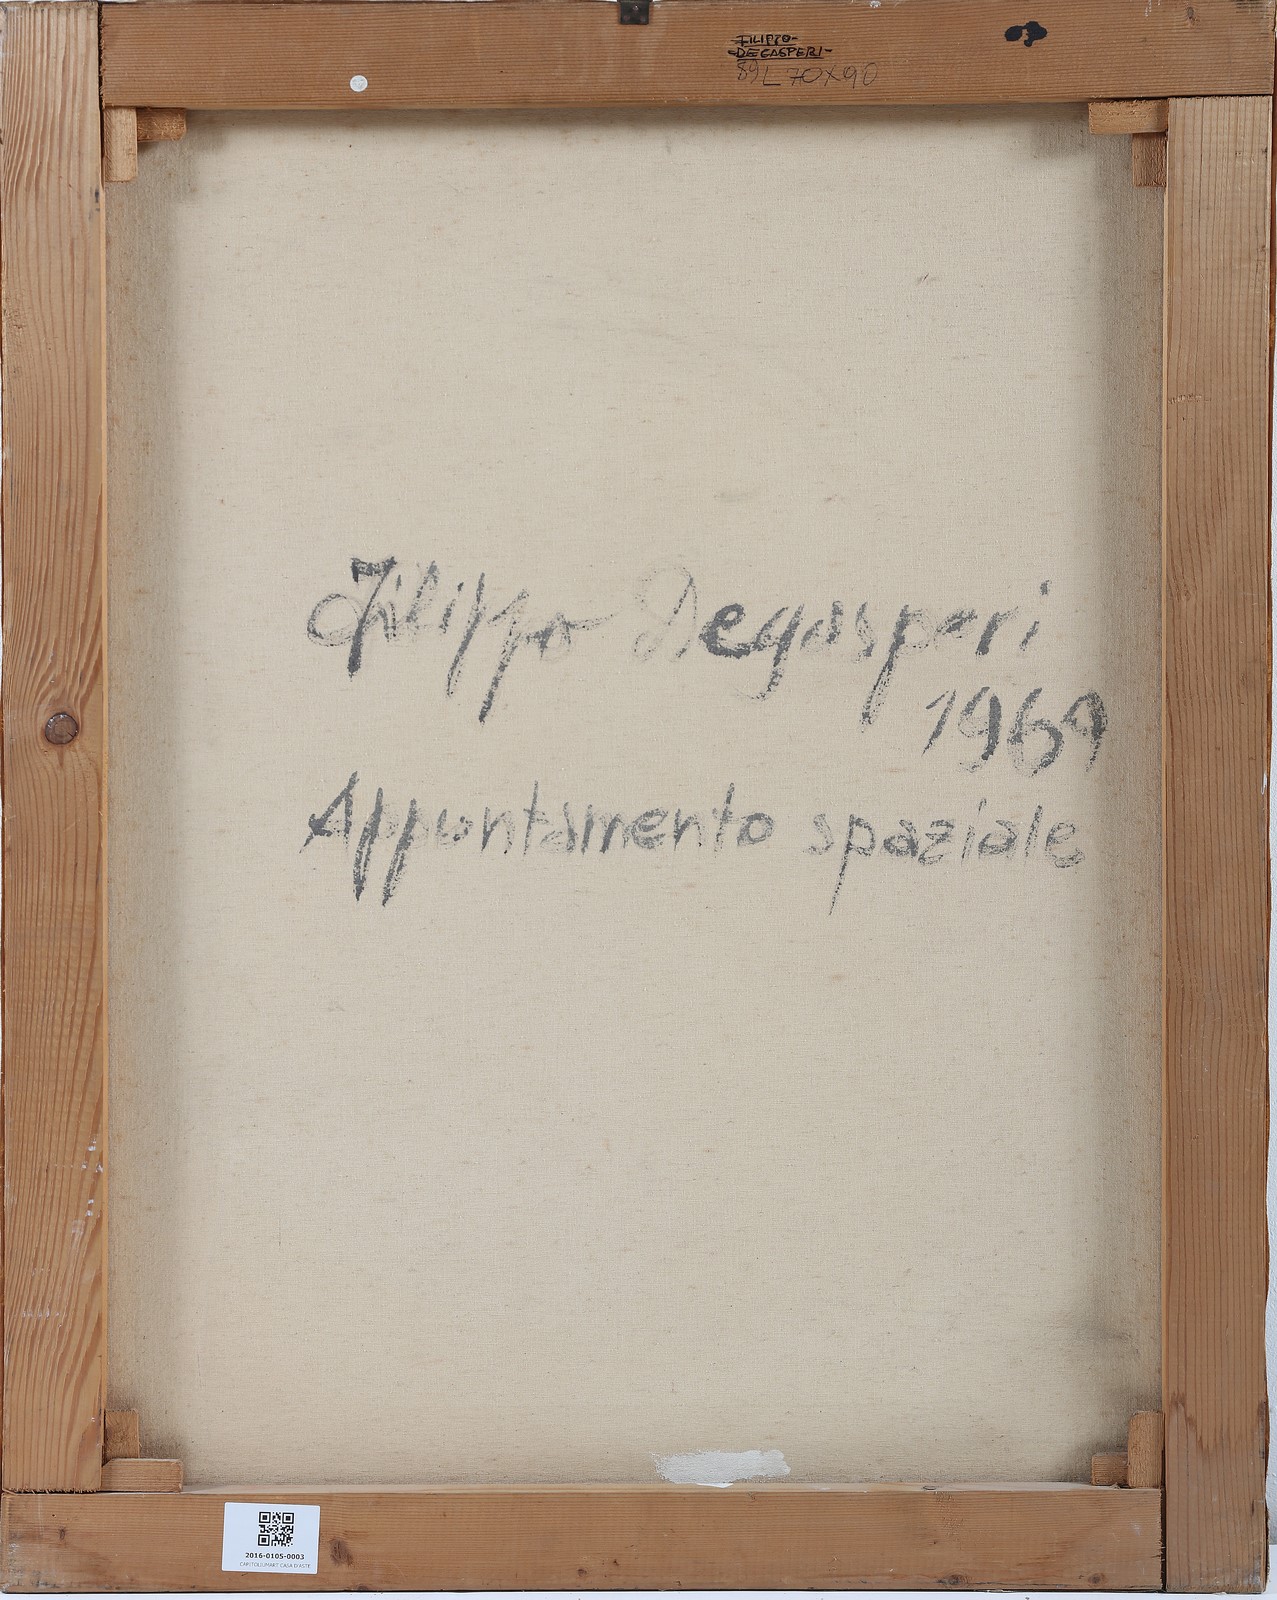 FILIPPO-
-DEGASPERI-
89L 70X90
Filippo Degasperi
1969
Appuntamento spaziale
2016-0105-0003
CAPITOLIUMART CASA D'ASTE